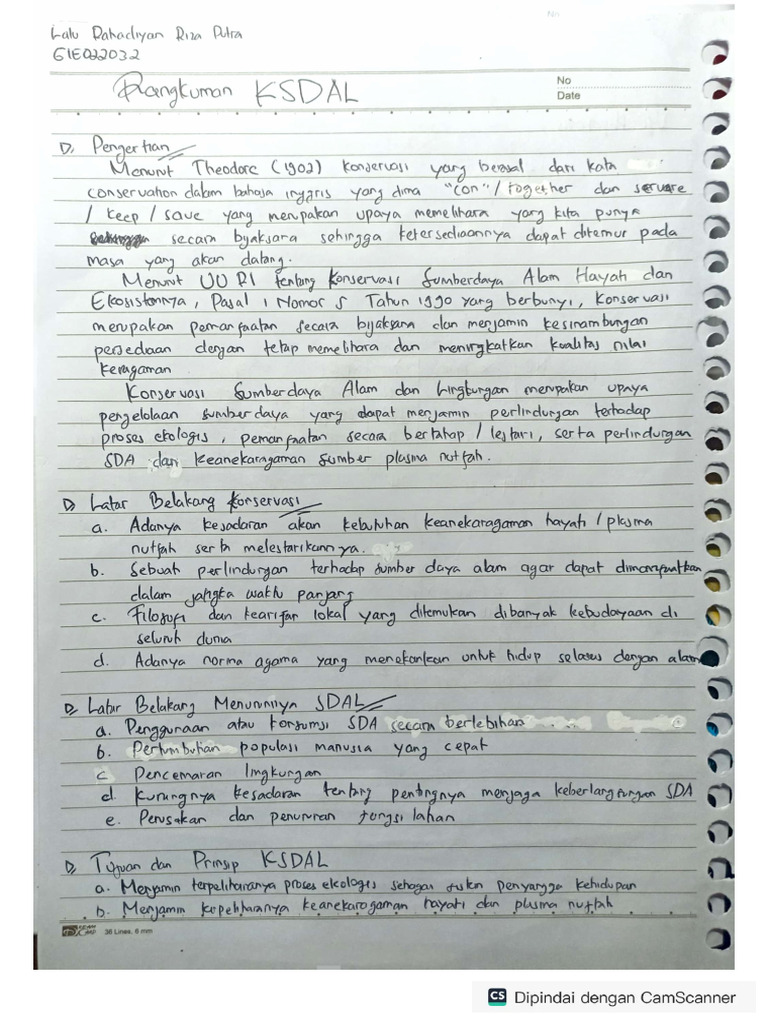 Lalu Rahadiyan Riza Putra
G1E022032
Rangkuman KSDAL
No
Date
Pengertian
Menurut Theodore (1902) konservasi yang berasal dari kata
conservation dalam bahasa inggris yang dima "con" / together dan servare
/ keep / save yang merupakan upaya memelihara yang kita punya
secara bijaksara sehingga ketersediaannya dapat ditemur pada
masa yang akan datang.
Menurut UU RI tentang Konservasi Sumberdaya Alam Hayah dan
Ekosistemnya, Pasal 1 Nomor 5 Tahun 1990 yang berbunyi, Konservasi
merupakan pemanfaatan secara bijaksana dan menjamin kesinambungan
persediaan dengan tetap memelihara dan meningkatkan kualitas nilai
keragaman
Konservasi Sumberdaya Alam dan Lingkungan merupakan upaya
pengelolaan sumberdaya yang dapat menjamin perlindungan terhadap
proses ekologis, pemanfaatan secara bertahap / lestari, serta perlindungan
SDA dan Keanekaragaman Sumber plasma nutfah.
Latar Belakang Konservasi
a. Adanya kesadaran akan kebutuhan keanekaragaman hayati / plasma
nutfah serta melestarikannya.
b. Sebuah perlindungan terhadap sumber daya alam agar dapat dimanfaatkan
dalam jangka waktu panjang
c. Filosofi dan kearifan lokal yang ditemukan dibanyak kebudayaan di
seluruh dunia
d. Adanya norma agama yang menekankan untuk hidup selaras dengan alam
Latar Belakang Menurunnya SDAL
a. Penggunaan atau konsumsi SDA secara berlebihan
b. Pertumbuhan populasi manusia yang cepat
c. Pencemaran lingkungan
d. Kurangnya kesadaran tentang pentingnya menjaga keberlangsungan SDA
e. Perusakan dan penurunan fungsi lahan
Tujuan dan Prinsip KSDAL
a. Menjamin terpeliharanya proses ekologis sebagai sistem penyangga kehidupan
b. Menjamin keanekaragaman hayati dan plasma nutfah
36 Lines, 6 mm
CS Dipindai dengan CamScanner